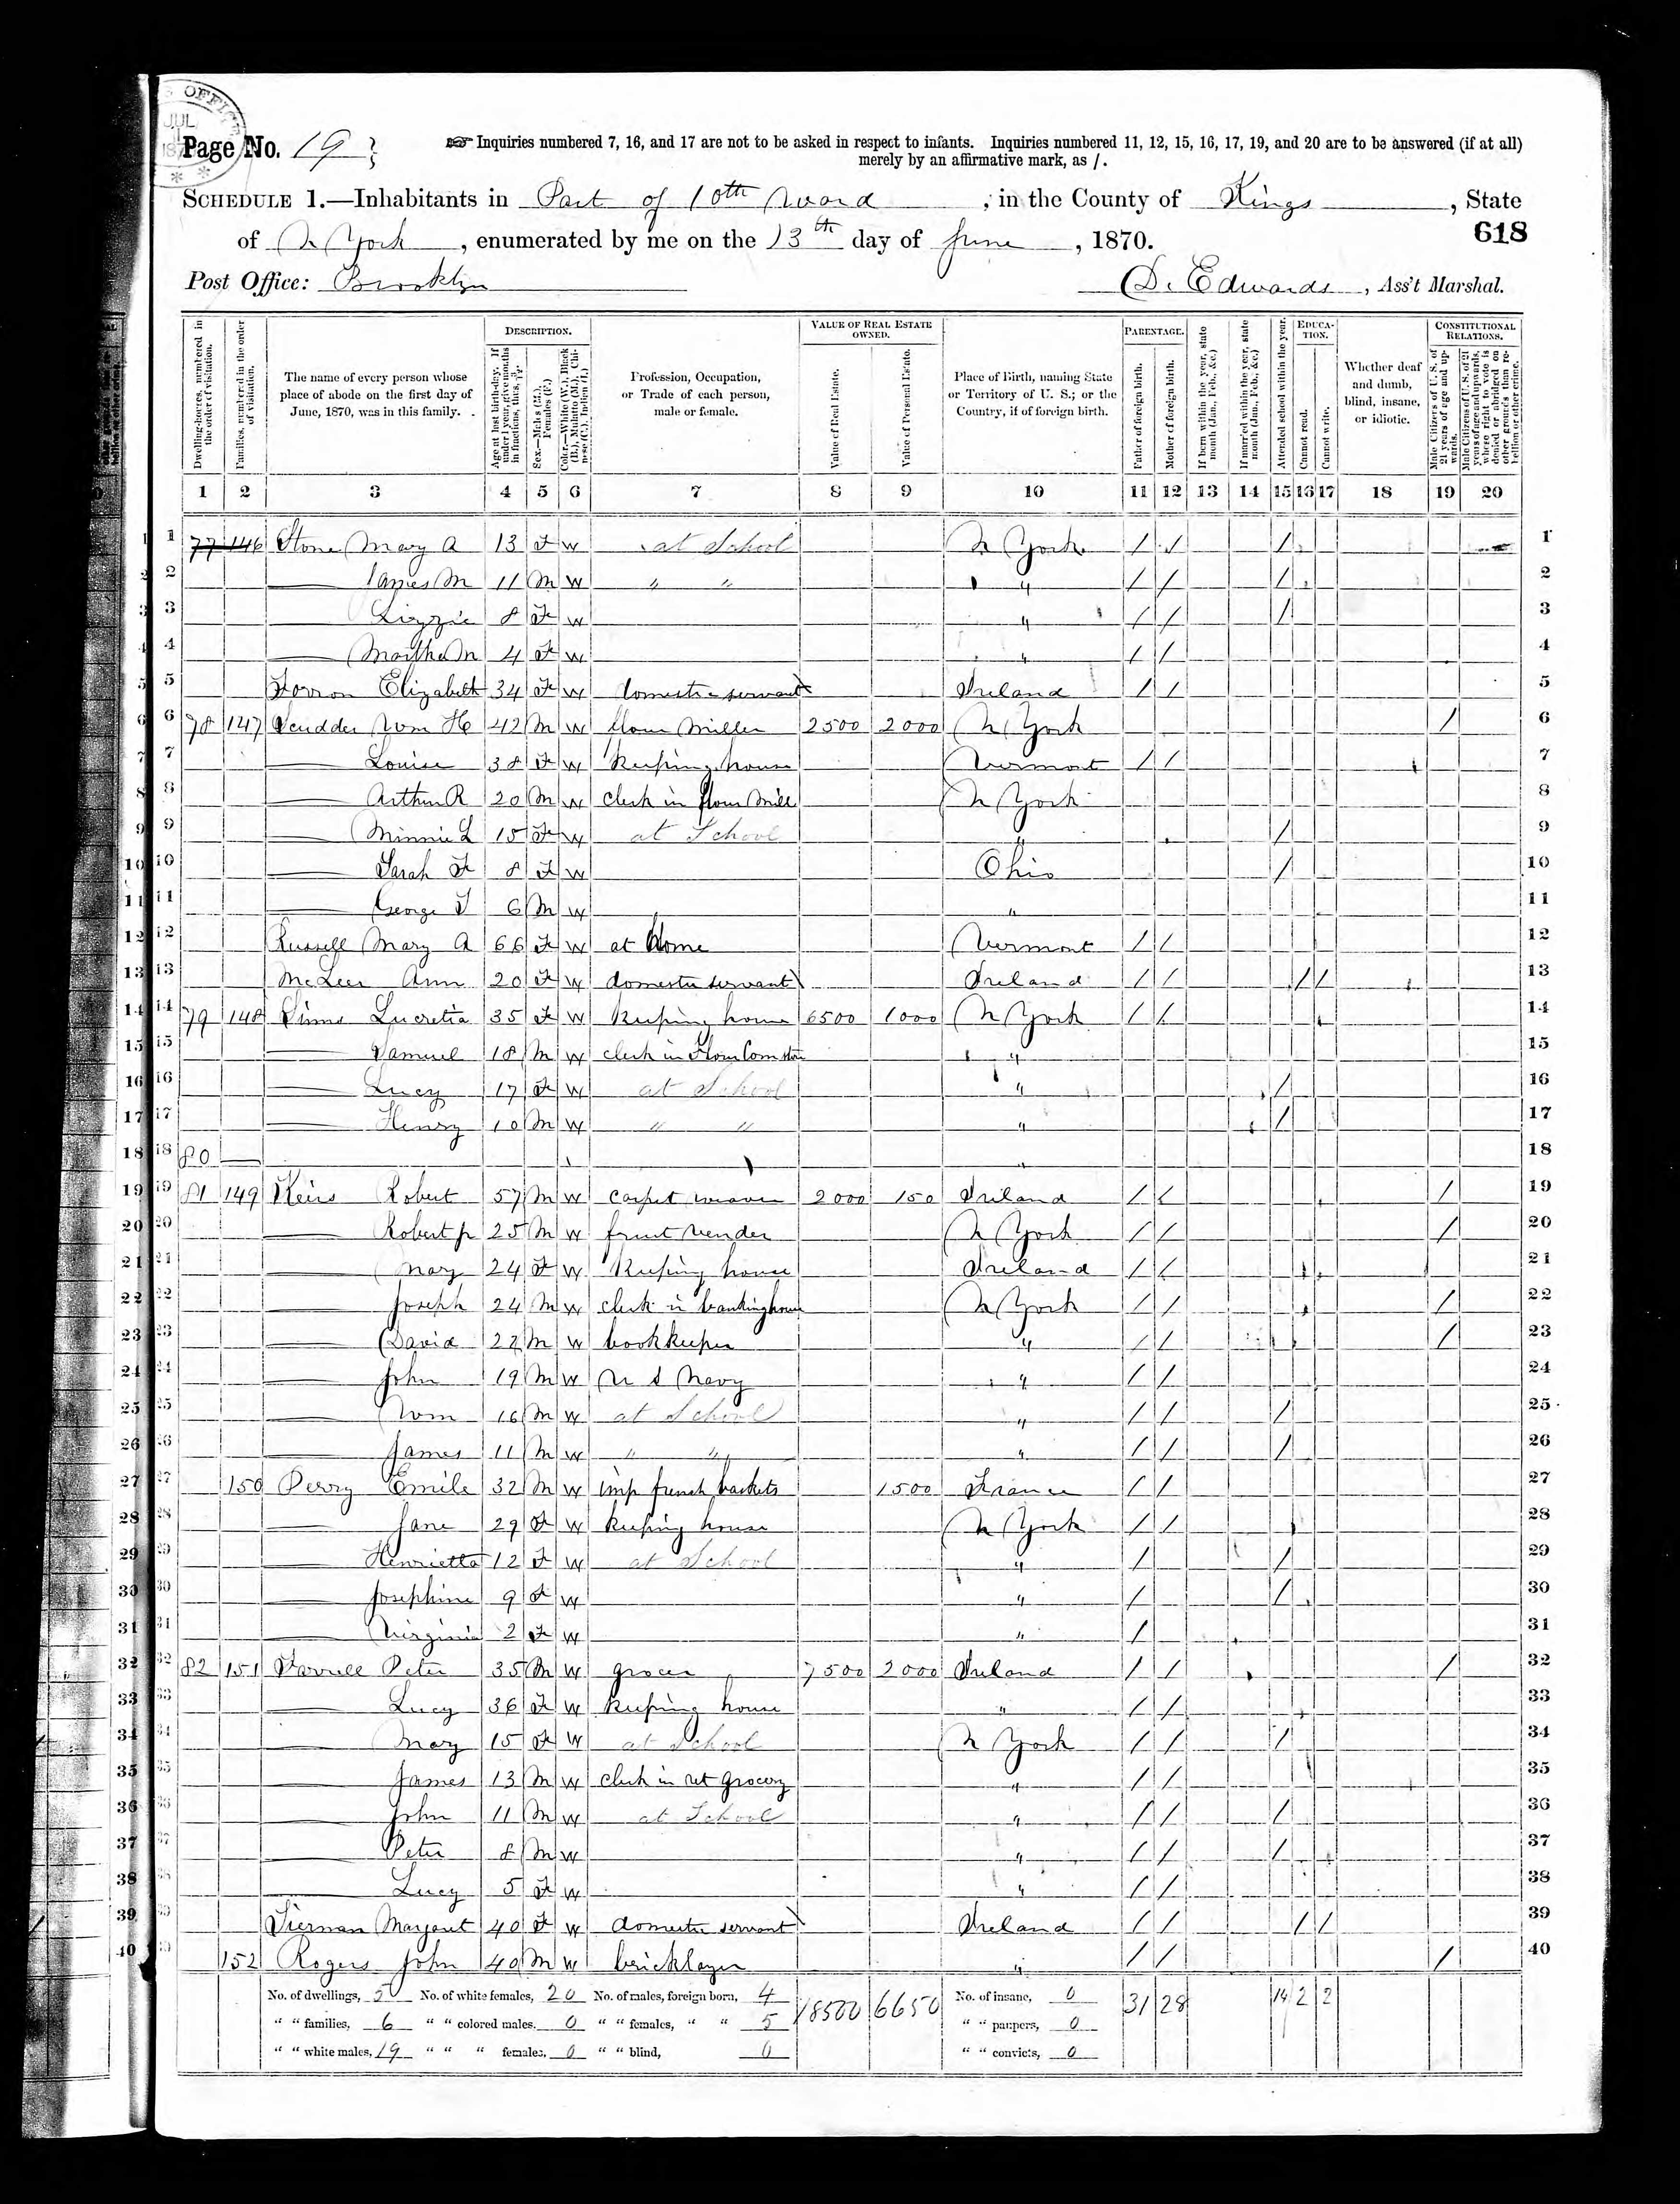 S OFFICE
JUL
187
Page No. 19
☞ Inquiries numbered 7, 16, and 17 are not to be asked in respect to infants. Inquiries numbered 11, 12, 15, 16, 17, 19, and 20 are to be answered (if at all)
merely by an affirmative mark, as /.
SCHEDULE 1.—Inhabitants in Part of 10th Ward, in the County of Kings, State
of N York, enumerated by me on the 13th day of June, 1870.
618
Post Office: Brooklyn
D. Edwards, Ass't Marshal.
Dwelling-houses, numbered in the order of visitation.
Families, numbered in the order of visitation.
The name of every person whose place of abode on the first day of June, 1870, was in this family.
DESCRIPTION.
Age at last birth-day. If under 1 year, give months in fractions, thus, 3/12.
Sex.—Males (M.), Females (F.)
Color.—White (W.), Black (B.), Mulatto (M.), Chinese (C.), Indian (I.)
Profession, Occupation, or Trade of each person, male or female.
VALUE OF REAL ESTATE OWNED.
Value of Real Estate.
Value of Personal Estate.
Place of Birth, naming State or Territory of U. S.; or the Country, if of foreign birth.
PARENTAGE.
Father of foreign birth.
Mother of foreign birth.
If born within the year, state month (Jan., Feb., &c.)
If married within the year, state month (Jan., Feb., &c.)
Attended school within the year.
EDUCATION.
Cannot read.
Cannot write.
Whether deaf and dumb, blind, insane, or idiotic.
CONSTITUTIONAL RELATIONS.
Male Citizens of U. S. of 21 years of age and upwards.
Male Citizens of U. S. of 21 years of age and upwards, whose right to vote is denied or abridged on other grounds than rebellion or other crime.
1 2 3 4 5 6 7 8 9 10 11 12 13 14 15 16 17 18 19 20
1 77 146 Stone Mary A 13 F W at School N York / / / 1
2 — James M 11 M W " " " / / / 2
3 — Lizzie 8 F W " / / / 3
4 — Martha M 4 F W " / / 4
5 Elizabeth 34 F W domestic servant Ireland / / 5
6 78 147 Scudder Wm H 42 M W flour Miller 2500 2000 N York / 6
7 — Louise 38 F W Keeping house Vermont / / 7
8 — Arthur R 20 M W Clerk in flour Mill N York 8
9 — Minnie L 15 F W at School " / 9
10 — Sarah F 8 F W Ohio / 10
11 — George T 6 M W " 11
12 Russell Mary A 66 F W at Home Vermont / / 12
13 McLeer Ann 20 F W domestic servant Ireland / / / / 13
14 79 148 Simms Lucretia 35 F W Keeping house 6500 1000 N York / / 14
15 — Samuel 18 M W clerk in Flour Com store " 15
16 — Lucy 17 F W at School " / 16
17 — Henry 10 M W " " " / 17
18 80 — " 18
19 81 149 Keirs Robert 57 M W Carpet weaver 2000 150 Ireland / / / 19
20 — Robert jr 25 M W fruit vender N York / / / 20
21 — Mary 24 F W Keeping house Ireland / / 21
22 — Joseph 24 M W clerk in banking house N York / / / 22
23 — David 22 M W bookkeeper " / / / 23
24 — John 19 M W U S Navy " / / 24
25 — Wm 16 M W at School " / / / 25
26 — James 11 M W " " " / / / 26
27 150 Perry Emile 32 M W imp french baskets 1500 France / / 27
28 — Jane 29 F W Keeping house N York / / 28
29 — Henrietta 12 F W at School " / / 29
30 — Josephine 9 F W " / / 30
31 — Virginia 2 F W " / 31
32 82 151 Farrell Peter 35 M W grocer 7500 2000 Ireland / / / 32
33 — Lucy 36 F W Keeping house " / / 33
34 — Mary 15 F W at School N York / / / 34
35 — James 13 M W Clerk in ret Grocery " / / 35
36 — John 11 M W at School " / / / 36
37 — Peter 8 M W " / / / 37
38 — Lucy 5 F W " / / 38
39 Tiernan Margaret 40 F W domestic servant Ireland / / / / 39
40 152 Rogers John 40 M W bricklayer " / / / 40
No. of dwellings, 5 No. of white females, 20 No. of males, foreign born, 4 18500 6650 No. of insane, 0 31 28 14 2 2
" " families, 6 " " colored males, 0 " " females, " " 5 " " paupers, 0
" " white males, 19 " " " females, 0 " " blind, 0 " " convicts, 0